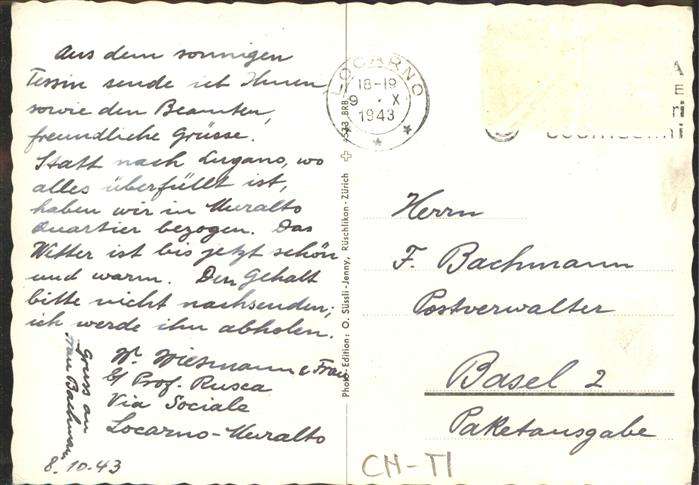 Aus dem sonnigen
Tessin sende ich Ihnen
sowie den Beamten,
freundliche Grüsse.
Statt nach Lugano, wo
alles überfüllt ist,
haben wir in Muralto
Quartier bezogen. Das
Wetter ist bis jetzt schön
und warm. Den Gehalt
bitte nicht nachsenden;
ich werde ihn abholen.
W. Wiesmann & Frau
b/ Prof. Rusca
Via Sociale
Locarno-Muralto
Gruss an
Frau Bachmann
8.10.43
Photo-Edition: O. Süssli-Jenny, Rüschlikon-Zürich
4533 BRB
LOCARNO
18-19
9 · X
1943
Herrn
F. Bachmann
Postverwalter
Basel 2
Paketausgabe
CH-TI